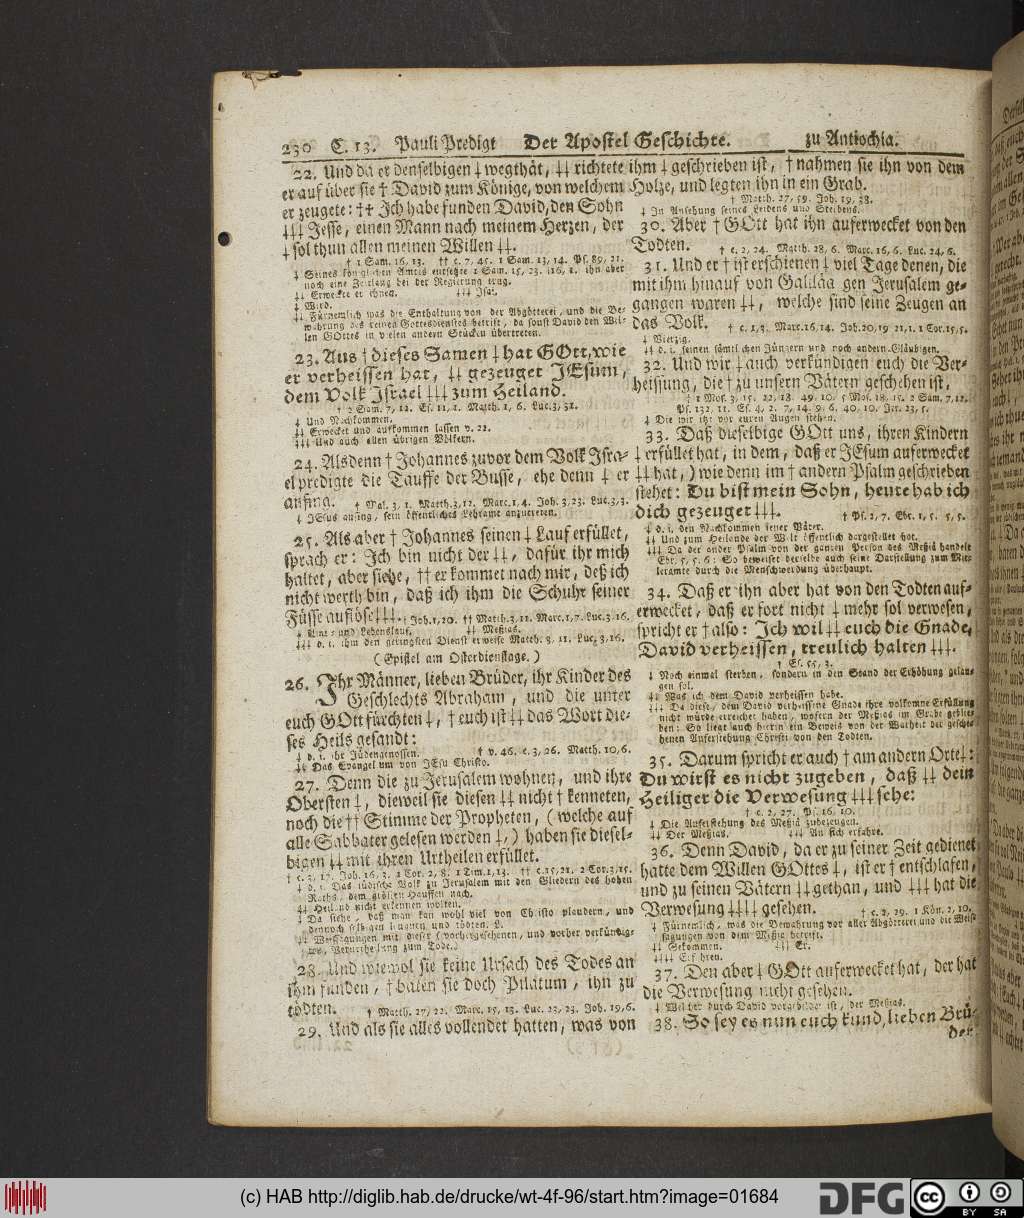 230 C. 13. Pauli Predigt Der Apostel Geschichte. zu Antiochia.
22. Und da er denselbigen ‡ wegthät, ‡‡ richtete
er auf über sie † David zum Könige, von welchem
er zeugete: †† Ich habe funden David, den Sohn
‡‡‡ Jesse, einen Mann nach meinem Herzen, der
‡ sol thun allen meinen Willen ‡‡.
† 1 Sam. 16, 13. †† c. 7, 45. 1 Sam. 13, 14. Ps. 89, 21.
‡ Seines königlichen Amtes entsetzte 1 Sam. 15, 23. 16, 1. ihn aber
noch eine Zeitlang bei der Regierung trug.
‡‡ Erweckte er ihnen. ‡‡‡ Isai.
‡ Wird.
‡‡ Fürnemlich was die Enthaltung von der Abgötterei, und die Be-
wahrung des reinen Gottesdienstes betrift, da sonst David den Wil-
len GOttes in vielen andern Stücken übertreten.
23. Aus † dieses Samen ‡ hat GOtt, wie
er verheissen hat, ‡‡ gezeuget JEsum,
dem Volk Israel ‡‡‡ zum Heiland.
† 2 Sam. 7, 12. Es. 11, 1. Matth. 1, 6. Luc. 3, 31.
‡ Und Nachkommen.
‡‡ Erwecket und aufkommen lassen v. 22.
‡‡‡ Und auch allen übrigen Völkern.
24. Alsdenn † Johannes zuvor dem Volk Isra-
el predigte die Tauffe der Busse, ehe denn ‡ er
anfing. † Mal. 3, 1. Matth. 3, 12. Marc. 1, 4. Joh. 3, 23. Luc. 3, 3.
‡ JEsus anfing, sein öffentliches Lehramt anzutreten.
25. Als aber † Johannes seinen ‡ Lauf erfüllet,
sprach er: Ich bin nicht der ‡‡, dafür ihr mich
haltet, aber siehe, †† er kommet nach mir, deß ich
nicht werth bin, daß ich ihm die Schuhe seiner
Füsse auflöse ‡‡‡. † Joh. 1, 20. †† Matth. 3, 11. Marc. 1, 7. Luc. 3, 16.
‡ Amt- und Lebenslauf. ‡‡ Meßias.
‡‡‡ d. i. ihm den geringsten Dienst erweise Matth. 3, 11. Luc. 3, 16.
(Epistel am Osterdienstage.)
26. Ihr Männer, lieben Brüder, ihr Kinder des
Geschlechts Abraham, und die unter
euch GOtt fürchten ‡, † euch ist ‡‡ das Wort die-
ses Heils gesandt: † v. 46. c. 3, 26. Matth. 10, 6.
‡ d. i. ihr Jüdengenossen.
‡‡ Das Evangelium von JEsu Christo.
27. Denn die zu Jerusalem wohnen, und ihre
Obersten ‡, dieweil sie diesen ‡‡ nicht † kenneten,
noch die †† Stimme der Propheten, (welche auf
alle Sabbater gelesen werden ‡,) haben sie diesel-
bigen ‡‡ mit ihren Urtheilen erfüllet.
† c. 3, 17. Joh. 16, 3. 1 Cor. 2, 8. 1 Tim. 1, 13. †† c. 15, 21. 2 Cor. 3, 15.
‡ d. i. Das jüdische Volk zu Jerusalem mit den Gliedern des hohen
Raths, dem größten Hauffen nach.
‡‡ Heiland nicht erkennen wolten.
‡ Da siehe, daß man kan wohl viel von Christo plaudern, und
dennoch selbigen läugnen und tödten. L.
‡‡ Weissagungen mit dieser (vorhergesehenen, und vorher verkündig-
ten, Verurtheilung zum Tode.)
28. Und wiewol sie keine Ursach des Todes an
ihm funden, † baten sie doch Pilatum, ihn zu
tödten. † Matth. 27, 22. Marc. 15, 13. Luc. 23, 23. Joh. 19, 6.
29. Und als sie alles vollendet hatten, was von
ihm ‡ geschrieben ist, † nahmen sie ihn von dem
Holze, und legten ihn in ein Grab.
† Matth. 27, 59. Joh. 19, 38.
‡ In Ansehung seines Leidens und Sterbens.
30. Aber † GOtt hat ihn auferwecket von den
Todten. † c. 2, 24. Matth. 28, 6. Marc. 16, 6. Luc. 24, 6.
31. Und er † ist erschienen ‡ viel Tage denen, die
mit ihm hinauf von Galiläa gen Jerusalem ge-
gangen waren ‡‡, welche sind seine Zeugen an
das Volk. † c. 1, 3. Marc. 16, 14. Joh. 20, 19. 21, 1. 1 Cor. 15, 5.
‡ Vierzig.
‡‡ d. i. seinen sämtlichen Jüngern und noch andern Gläubigen.
32. Und wir ‡ auch verkündigen euch die Ver-
heisung, die † zu unsern Vätern geschehen ist,
† 1 Mos. 3, 15. 22, 18. 49, 10. 5 Mos. 18, 15. 2 Sam. 7, 12.
Ps. 132, 11. Es. 4, 2. 7, 14. 9, 6. 40, 10. Jer. 23, 5.
‡ Die wir itzt vor euren Augen stehen.
33. Daß dieselbige GOtt uns, ihren Kindern
‡ erfüllet hat, in dem, daß er JEsum auferwecket
‡‡ hat,) wie denn im † andern Psalm geschrieben
stehet: Du bist mein Sohn, heute hab ich
dich gezeuget ‡‡‡. † Ps. 2, 7. Ebr. 1, 5. 5, 5.
‡ d. i. den Nachkommen jener Väter.
‡‡ Und zum Heilande der Welt öffentlich dargestellet hat.
‡‡‡ Da der ander Psalm von der ganzen Person des Meßiä handelt
Ebr. 5, 5. 6: So beweiset derselbe auch seine Darstellung zum Mit-
leramte durch die Menschwerdung überhaupt.
34. Daß er ihn aber hat von den Todten auf-
erwecket, daß er fort nicht ‡ mehr sol verwesen,
spricht er † also: Ich wil ‡‡ euch die Gnade,
David verheissen, treulich halten ‡‡‡.
† Es. 55, 3.
‡ Noch einmal sterben, sondern in den Stand der Erhöhung gelan-
gen sol.
‡‡ Was ich dem David verheissen habe.
‡‡‡ Da diese, dem David verheissene Gnade ihre volkomne Erfüllung
nicht würde erreichet haben, wofern der Meßias im Grabe geblie-
ben: So liegt auch hierin ein Beweis von der Warheit der gesche-
henen Auferstehung Christi von den Todten.
35. Darum spricht er auch † am andern Orte ‡:
Du wirst es nicht zugeben, daß ‡‡ dein
Heiliger die Verwesung ‡‡‡ sehe:
† c. 2, 27. Ps. 16, 10.
‡ Die Auferstehung des Meßiä zubezeugen.
‡‡ Der Meßias. ‡‡‡ An sich erfahre.
36. Denn David, da er zu seiner Zeit gedienet
hatte dem Willen GOttes ‡, ist er † entschlafen,
und zu seinen Vätern ‡‡ gethan, und ‡‡‡ hat die
Verwesung ‡‡‡‡ gesehen. † c. 2, 29. 1 Kön. 2, 10.
‡ Fürnemlich, was die Bewahrung vor aller Abgötterei und die Weis-
sagungen von dem Meßia betrift.
‡‡ Gekommen. ‡‡‡ Er.
‡‡‡‡ Erfahren.
37. Den aber ‡ GOtt auferwecket hat, der hat
die Verwesung nicht gesehen.
‡ Welcher durch David vorgebildet ist, der Meßias.
38. So sey es nun euch kund, lieben Brü-
der
(c) HAB http://diglib.hab.de/drucke/wt-4f-96/start.htm?image=01684
DFG
cc BY SA